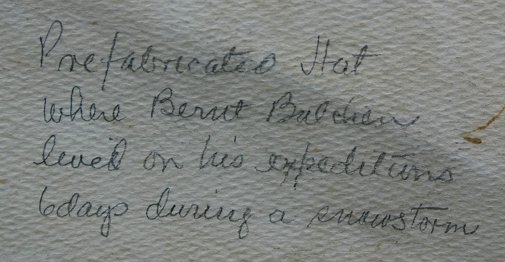 Prefabricated Hut
where Bernt Balchen
lived on his expeditions
6 days during a snowstorm